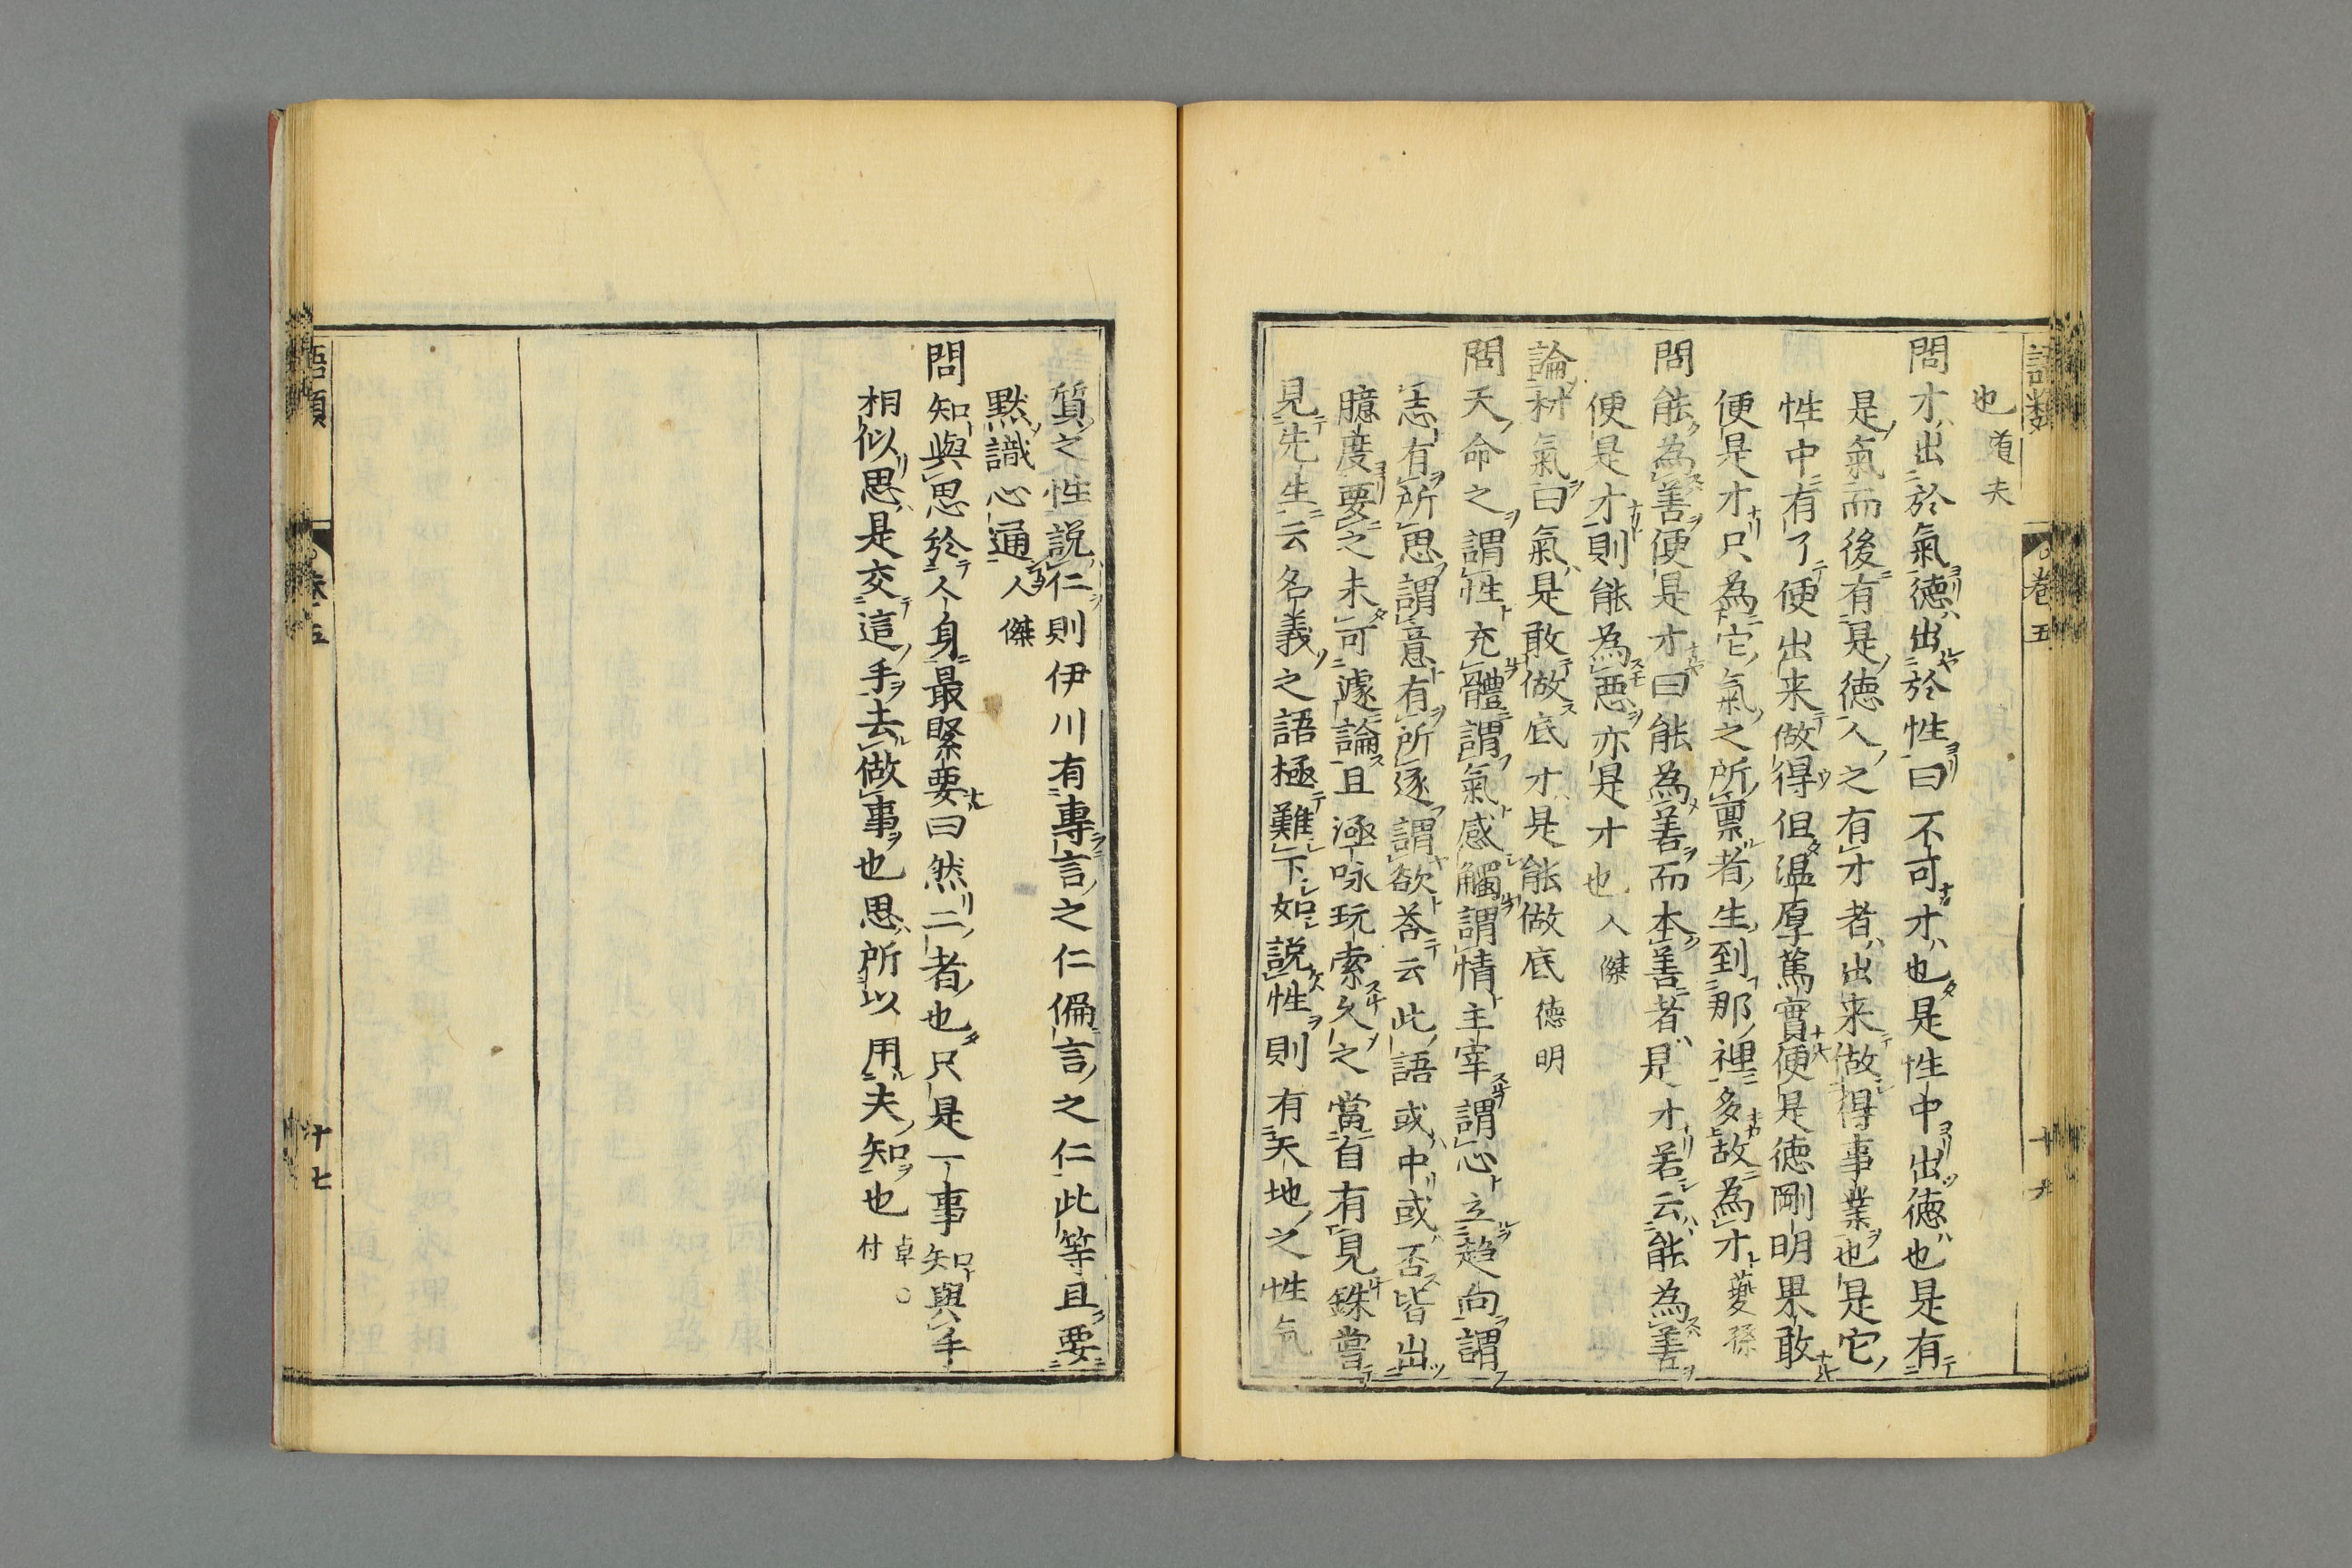 語類
卷五
也道夫
問才出於氣德出於性曰不可才也是性中出德也是有
是氣而後有是德人之有才者出来做得事業也是它
性中有了便出来做得但温厚篤實便是德剛明果敢
便是才只為它氣之所禀者生到那裡多故為才夔孫
問能為善便是才曰能為善而本善者是才若云能為善
便是才則能為惡亦是才也人傑
論材氣曰氣是敢做底才是能做底德明
問天命之謂性充體謂氣感觸謂情主宰謂心立趍向謂
志有所思謂意有所逐謂欲荅云此語或中或否皆出
臆度要之未可遽論且涵咏玩索久之當自有見銖嘗
見先生云名義之語極難下如說性則有天地之性氣
質之性說仁則伊川有專言之仁偏言之仁此等且要
默識心通人傑
問知與思於人身最緊要曰然二者也只是一事知與手
相似思是交這手去做事也思所以用夫知也卓 付 ○
語類
卷五
十七